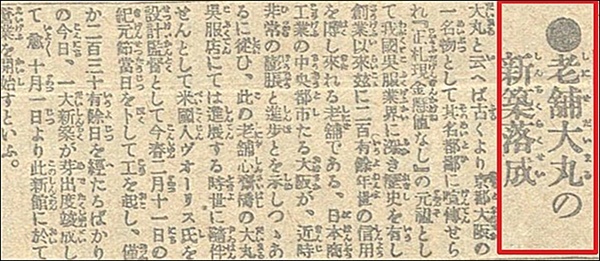 ●老舗大丸の
新築落成
大丸と云へば古くより京都大阪の
一名物として其名都鄙に喧傳せら
れ『正札現金懸値なし』の元祖とし
て我國呉服業界に深き歴史を有し
創業以來茲に二百有餘年世の信用
を博し來れる老舗である、日本商
工業の中央都市たる大阪が、近時
非常の膨脹と進歩とを示しつゝあ
るに從ひ、此の老舗心齋橋の大丸
呉服店にては進展する時世に隨伴
せんとして米國人ヴォーリス氏を
設計監督として今春二月十一日の
紀元節當日を卜して工を起し、僅
か二百三十有餘日を經たるばかり
の今日、一大新築が芽出度竣成し
て愈十月一日より此新館に於て
營業を開始すといふ。